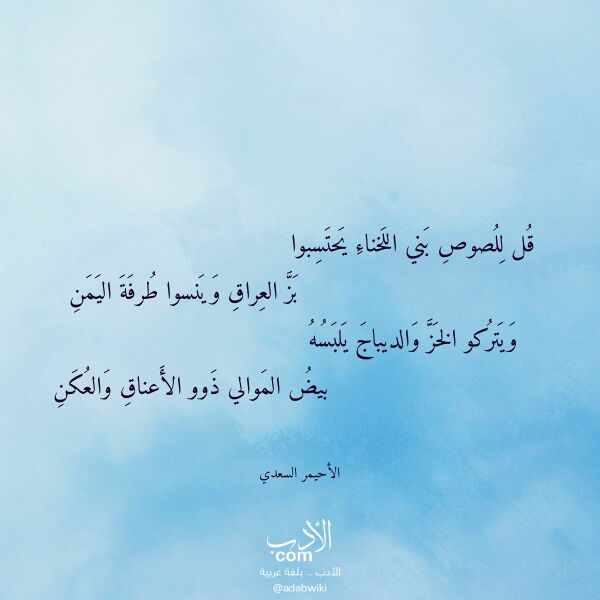 قُل لِلُصوصِ بَني اللَخناءِ يَحتَسِبوا
بَزَّ العِراقِ وَيَنسوا طُرفَةَ اليَمَنِ
وَيَترُكو الخَزَّ وَالديباجَ يَلبَسُهُ
بيضُ المَوالي ذَوو الأَعناقِ وَالعُكَنِ
الأحيمر السعدي
الأدب
com
الأدب .. بلغة عربية
@adabwiki